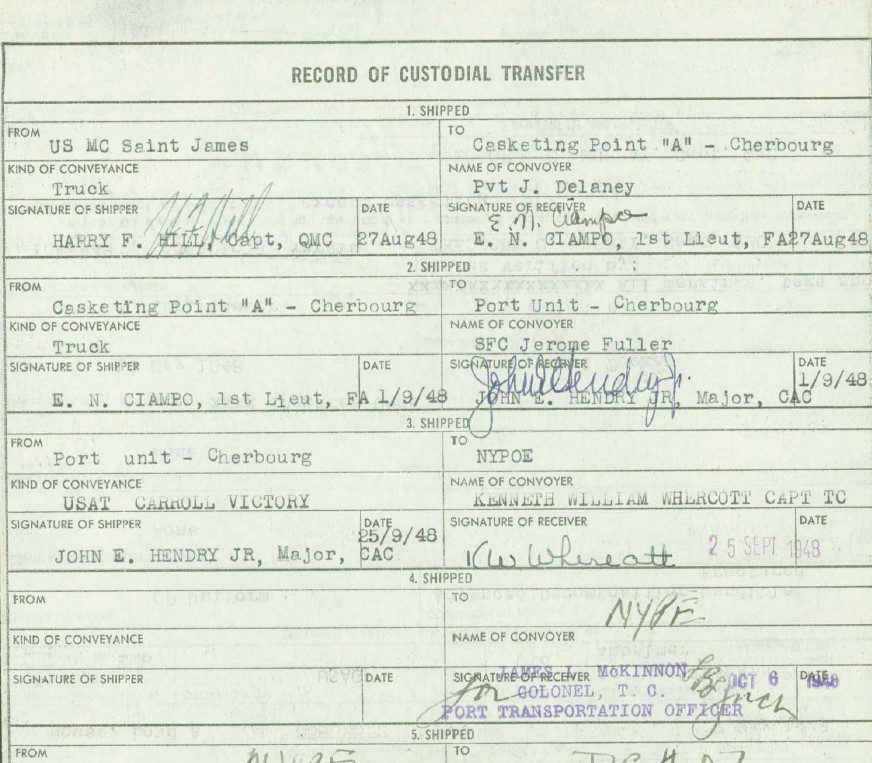 RECORD OF CUSTODIAL TRANSFER
1. SHIPPED
FROM TO
US MC Saint James Casketing Point "A" - Cherbourg
KIND OF CONVEYANCE NAME OF CONVOYER
Truck Pvt J. Delaney
SIGNATURE OF SHIPPER DATE SIGNATURE OF RECEIVER DATE
E. N. Ciampo
HARRY F. HILL, Capt, QMC 27Aug48 E. N. CIAMPO, 1st Lieut, FA 27Aug48
2. SHIPPED
FROM TO
Casketing Point "A" - Cherbourg Port Unit - Cherbourg
KIND OF CONVEYANCE NAME OF CONVOYER
Truck SFC Jerome Fuller
SIGNATURE OF SHIPPER DATE SIGNATURE OF RECEIVER DATE
John E Hendry Jr.
E. N. CIAMPO, 1st Lieut, FA 1/9/48 JOHN E. HENDRY JR, Major, CAC 1/9/48
3. SHIPPED
FROM TO
Port unit - Cherbourg NYPOE
KIND OF CONVEYANCE NAME OF CONVOYER
USAT CARROLL VICTORY KENNETH WILLIAM WHERCOTT CAPT TC
SIGNATURE OF SHIPPER DATE SIGNATURE OF RECEIVER DATE
JOHN E. HENDRY JR, Major, CAC 25/9/48 25 SEPT 1948
4. SHIPPED
FROM TO
NYPE
KIND OF CONVEYANCE NAME OF CONVOYER
SIGNATURE OF SHIPPER DATE SIGNATURE OF RECEIVER DATE
JAMES McKINNON OCT 6 1948
for COLONEL, T. C.
PORT TRANSPORTATION OFFICER
5. SHIPPED
FROM TO
NYPE